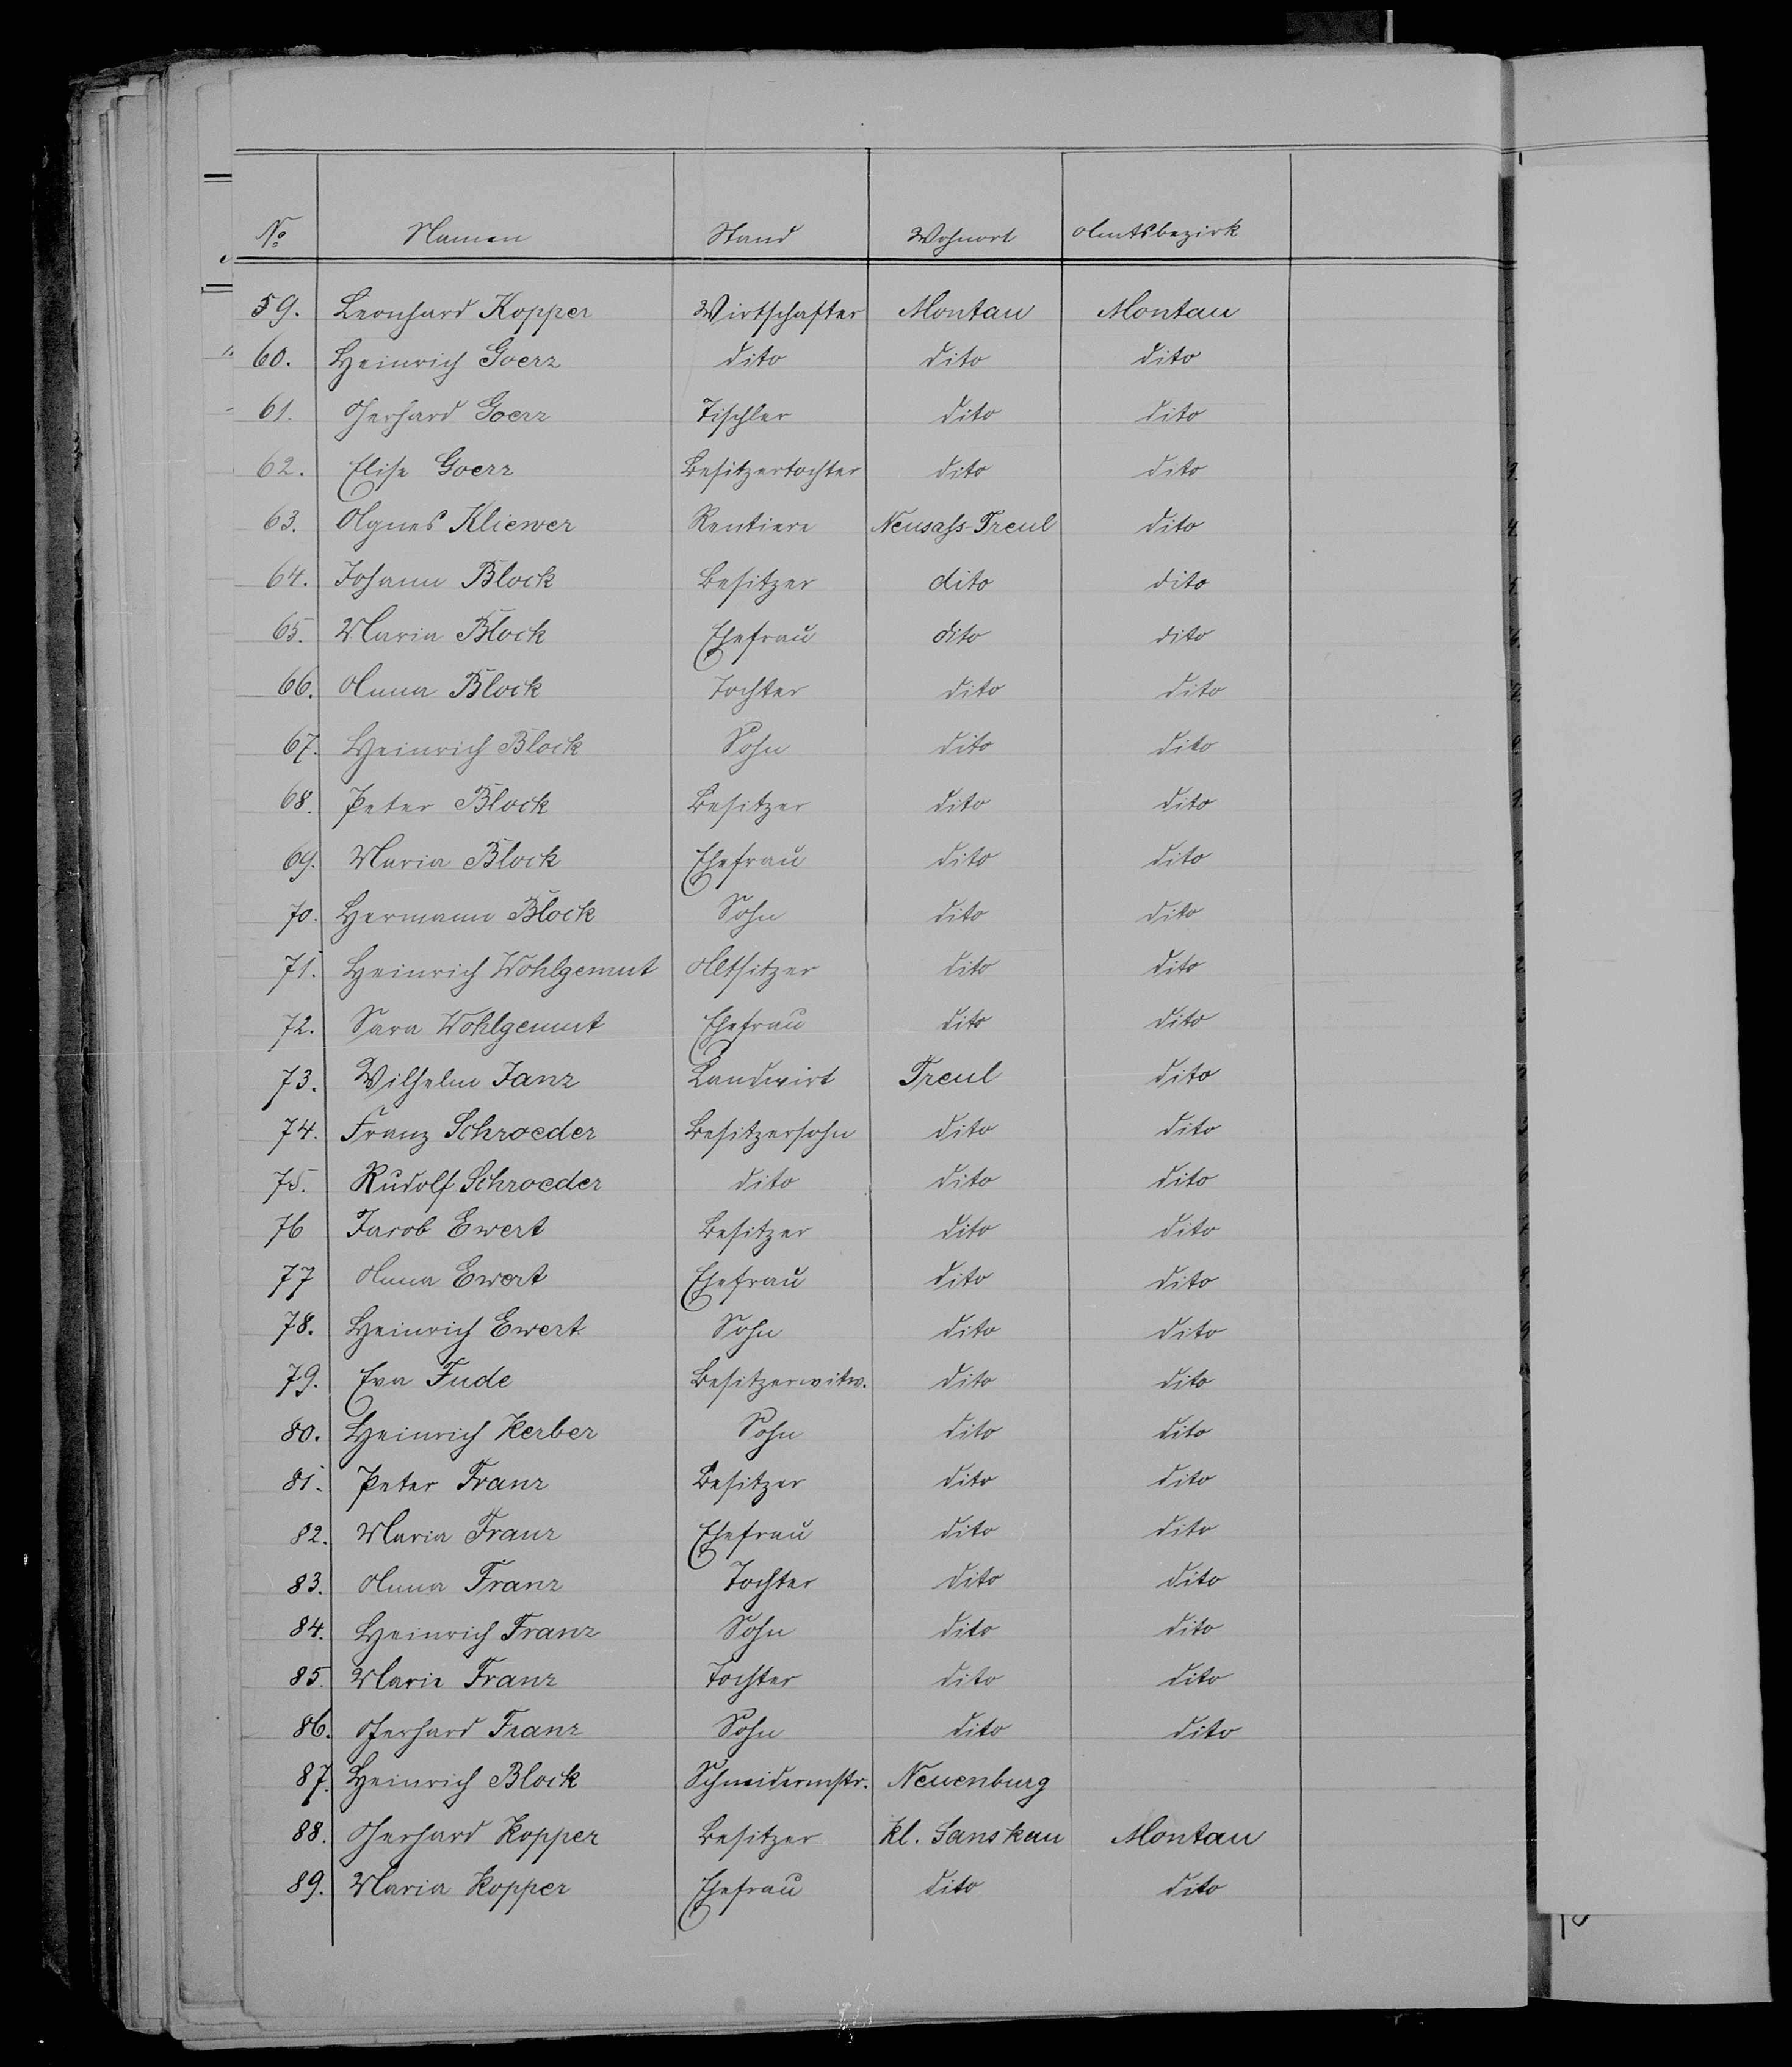 No Namen Stand Wohnort Amtsbezirk
59. Leonhard Kopper Wirtschafter Montau Montau
60. Heinrich Goerz dito dito dito
61. Gerhard Goerz Tischler dito dito
62. Elise Goerz Besitzertochter dito dito
63. Agnes Kliewer Rentiere Neusass-Treul dito
64. Johann Block Besitzer dito dito
65. Maria Block Ehefrau dito dito
66. Anna Block Tochter dito dito
67. Heinrich Block Sohn dito dito
68. Peter Block Besitzer dito dito
69. Maria Block Ehefrau dito dito
70. Hermann Block Sohn dito dito
71. Heinrich Wohlgemut Altsitzer dito dito
72. Sara Wohlgemut Ehefrau dito dito
73. Wilhelm Janz Landwirt Treul dito
74. Franz Schroeder Besitzersohn dito dito
75. Rudolf Schroeder dito dito dito
76 Jacob Ewert Besitzer dito dito
77 Anna Ewert Ehefrau dito dito
78. Heinrich Ewert Sohn dito dito
79. Eva Fude Besitzerwitw. dito dito
80. Heinrich Kerber Sohn dito dito
81. Peter Franz Besitzer dito dito
82. Maria Franz Ehefrau dito dito
83. Anna Franz Tochter dito dito
84. Heinrich Franz Sohn dito dito
85. Marie Franz Tochter dito dito
86. Gerhard Franz Sohn dito dito
87. Heinrich Block Schneidermstr. Neuenburg
88. Gerhard Kopper Besitzer Kl. Sanskau Montau
89. Maria Kopper Ehefrau dito dito